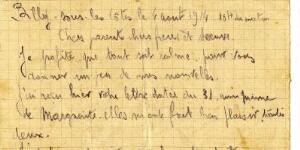 Billy-sous-les Côtes le 4 août 1914 18H du matin
Chers parents chers frères et soeurs.
Je profite que tout soit calme pour vous
donner un peu de mes nouvelles.
J'ai reçu hier votre lettre datée du 31,
de Marguerite. elles m'ont fait bien plaisir toutes
deux.